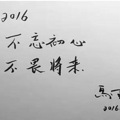 2016
不忘初心
不畏將来.
馬
2016